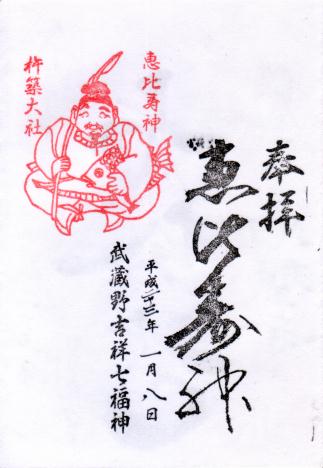 奉拝
恵比寿神
恵比寿神
杵築大社
平成二十三年 一月八日
武蔵野吉祥七福神